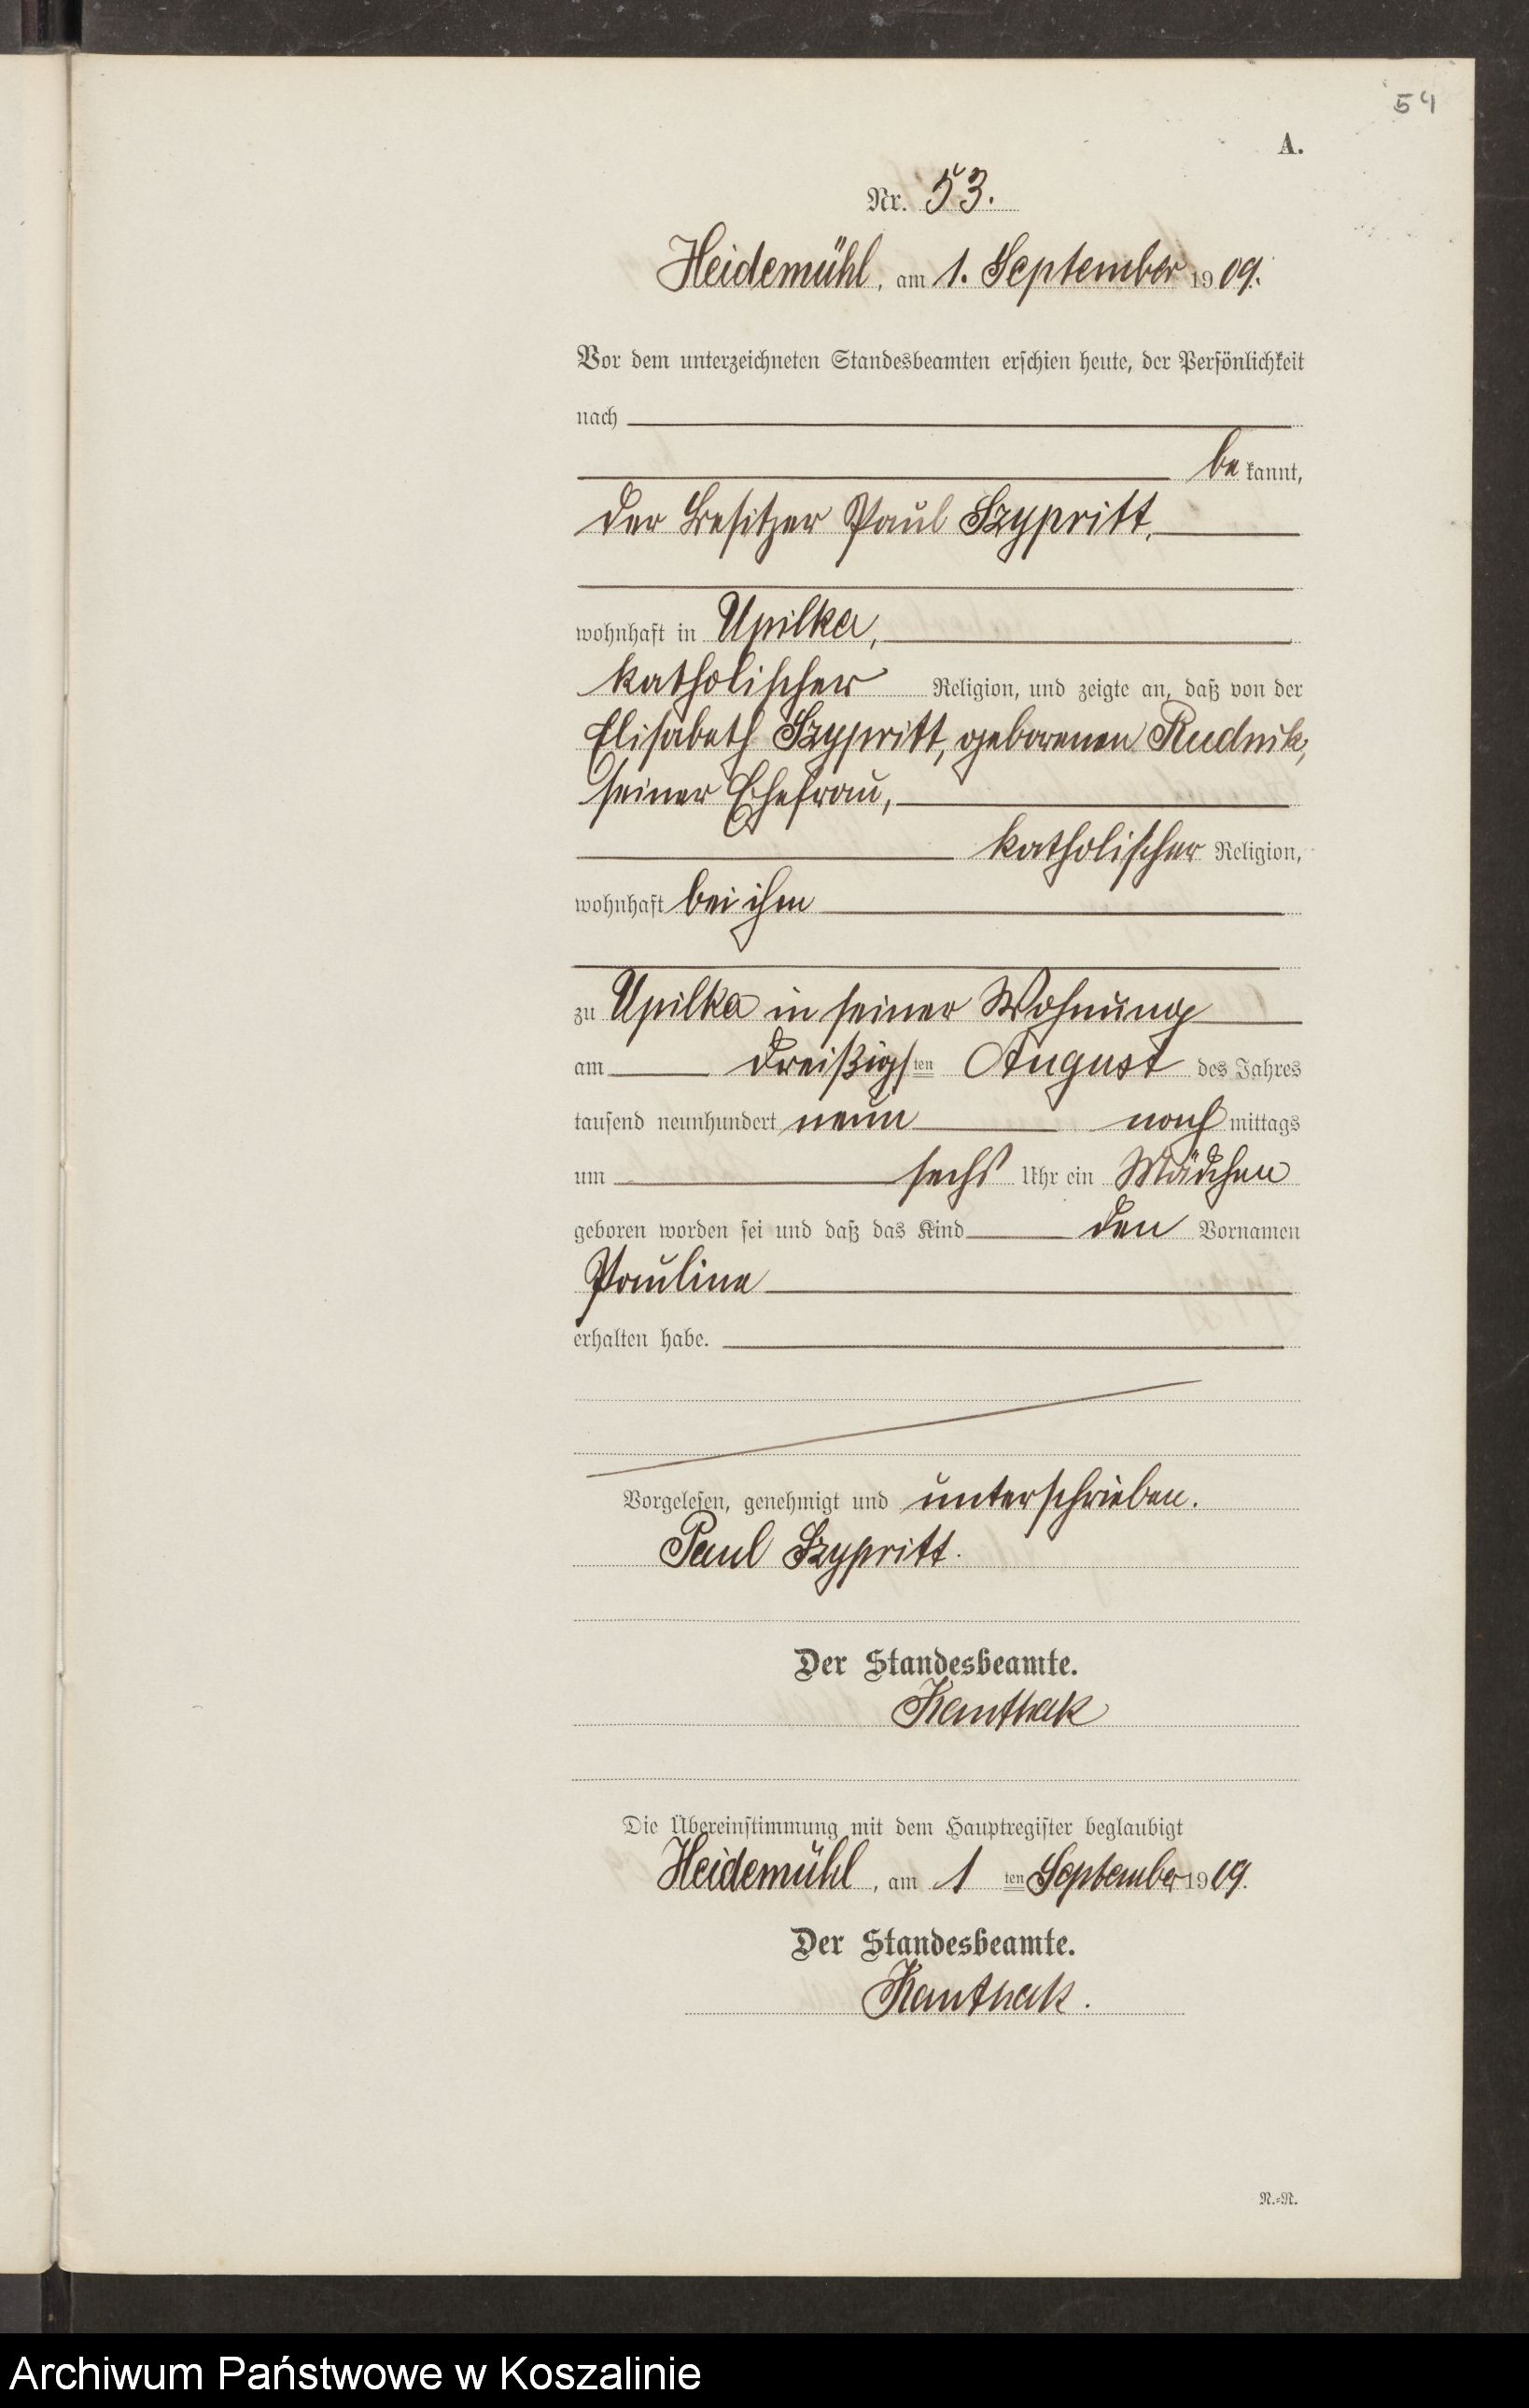 54
A.
Nr. 53.
Heidemühl, am 1. September 1909.
Vor dem unterzeichneten Standesbeamten erschien heute, der Persönlichkeit
nach
bekannt,
der Besitzer Paul Szypritt,
wohnhaft in Upilka,
katholischer Religion, und zeigte an, daß von der
Elisabeth Szypritt, geborenen Rudnik,
seiner Ehefrau,
katholischer Religion,
wohnhaft bei ihm
zu Upilka in seiner Wohnung
am dreißigsten August des Jahres
tausend neunhundert neun nachmittags
um sechs Uhr ein Mädchen
geboren worden sei und daß das Kind den Vornamen
Pauline
erhalten habe.
Vorgelesen, genehmigt und unterschrieben.
Paul Szypritt.
Der Standesbeamte.
Kanthak
Die Übereinstimmung mit dem Hauptregister beglaubigt
Heidemühl, am 1ten September 1909.
Der Standesbeamte.
Kanthak.
N.=N.
Archiwum Państwowe w Koszalinie